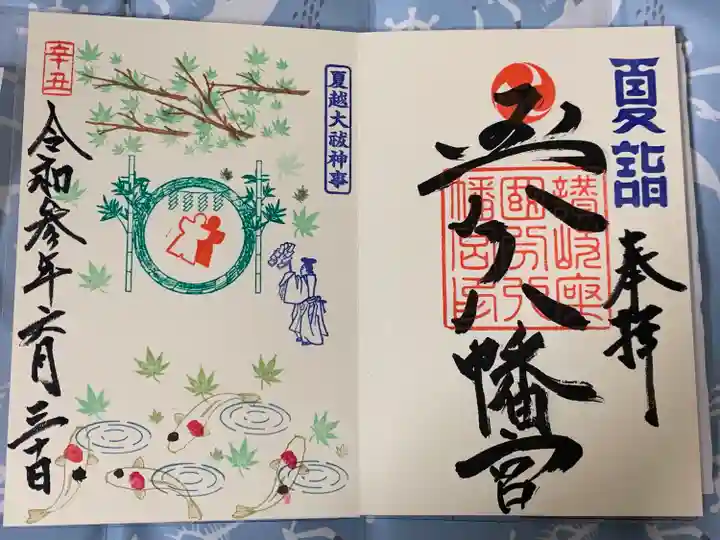 夏詣
奉拝
国分八幡宮
讃岐座
國分八
幡宮印
夏越大祓神事
辛丑
令和参年六月三十日